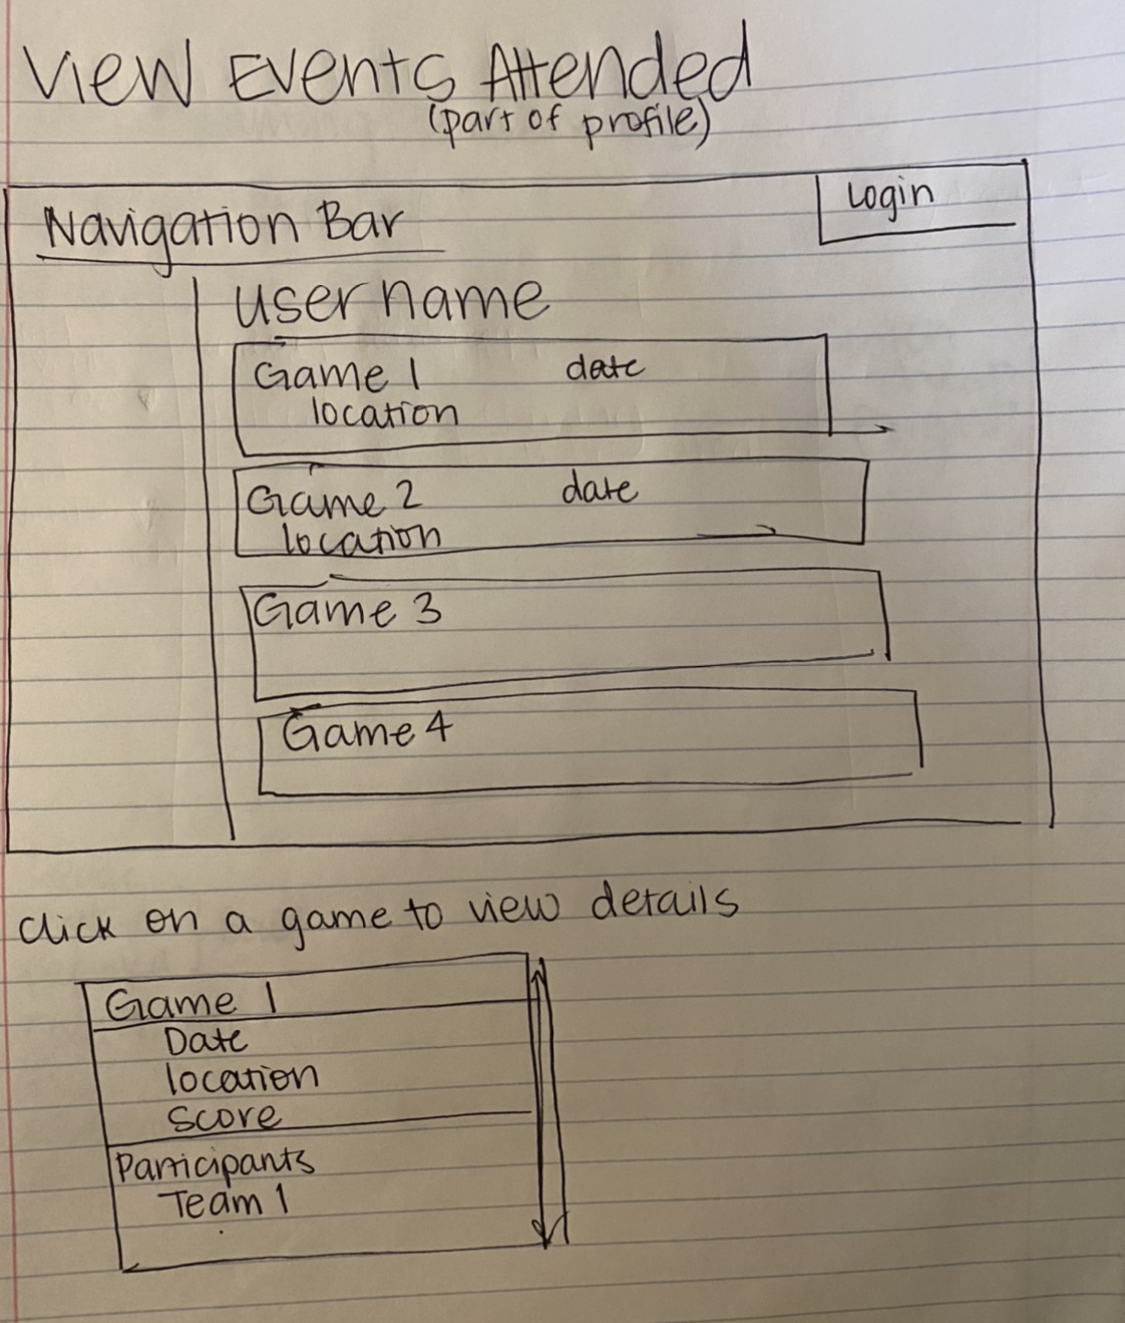 View Events Attended
(part of profile)
Navigation Bar
Login
user name
Game 1 date
location
Game 2 date
location
Game 3
Game 4
click on a game to view details
Game 1
Date
location
score
Participants
Team 1